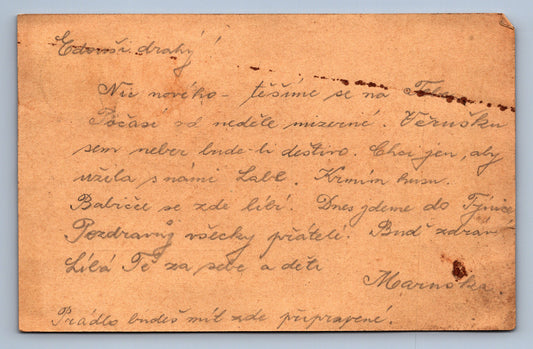 drahý!
Nic nového - těšíme se na
Počasí od neděle mizerné. Věrušku
sem neber bude-li deštivo. Chci jen, aby
užila s námi Labe. Krmím husu.
Babičce se zde líbí. Dnes jdeme do Týnice
Pozdravuj všecky přátelé. Buď zdráv
Líbá Tě za sebe a děti
Maruška.
Prádlo budeš mít zde připravené.